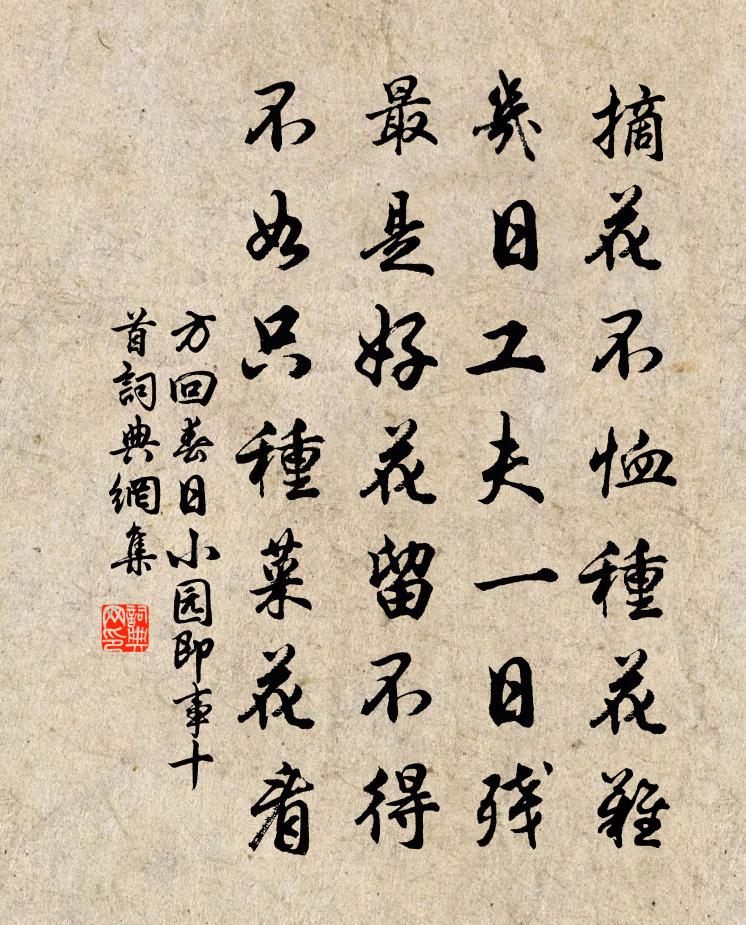 摘花不恤種花難
幾日工夫一日残
最是好花留不得
不如只種菜花看
方回春日小园即事十
首詞典網集
詞典网印